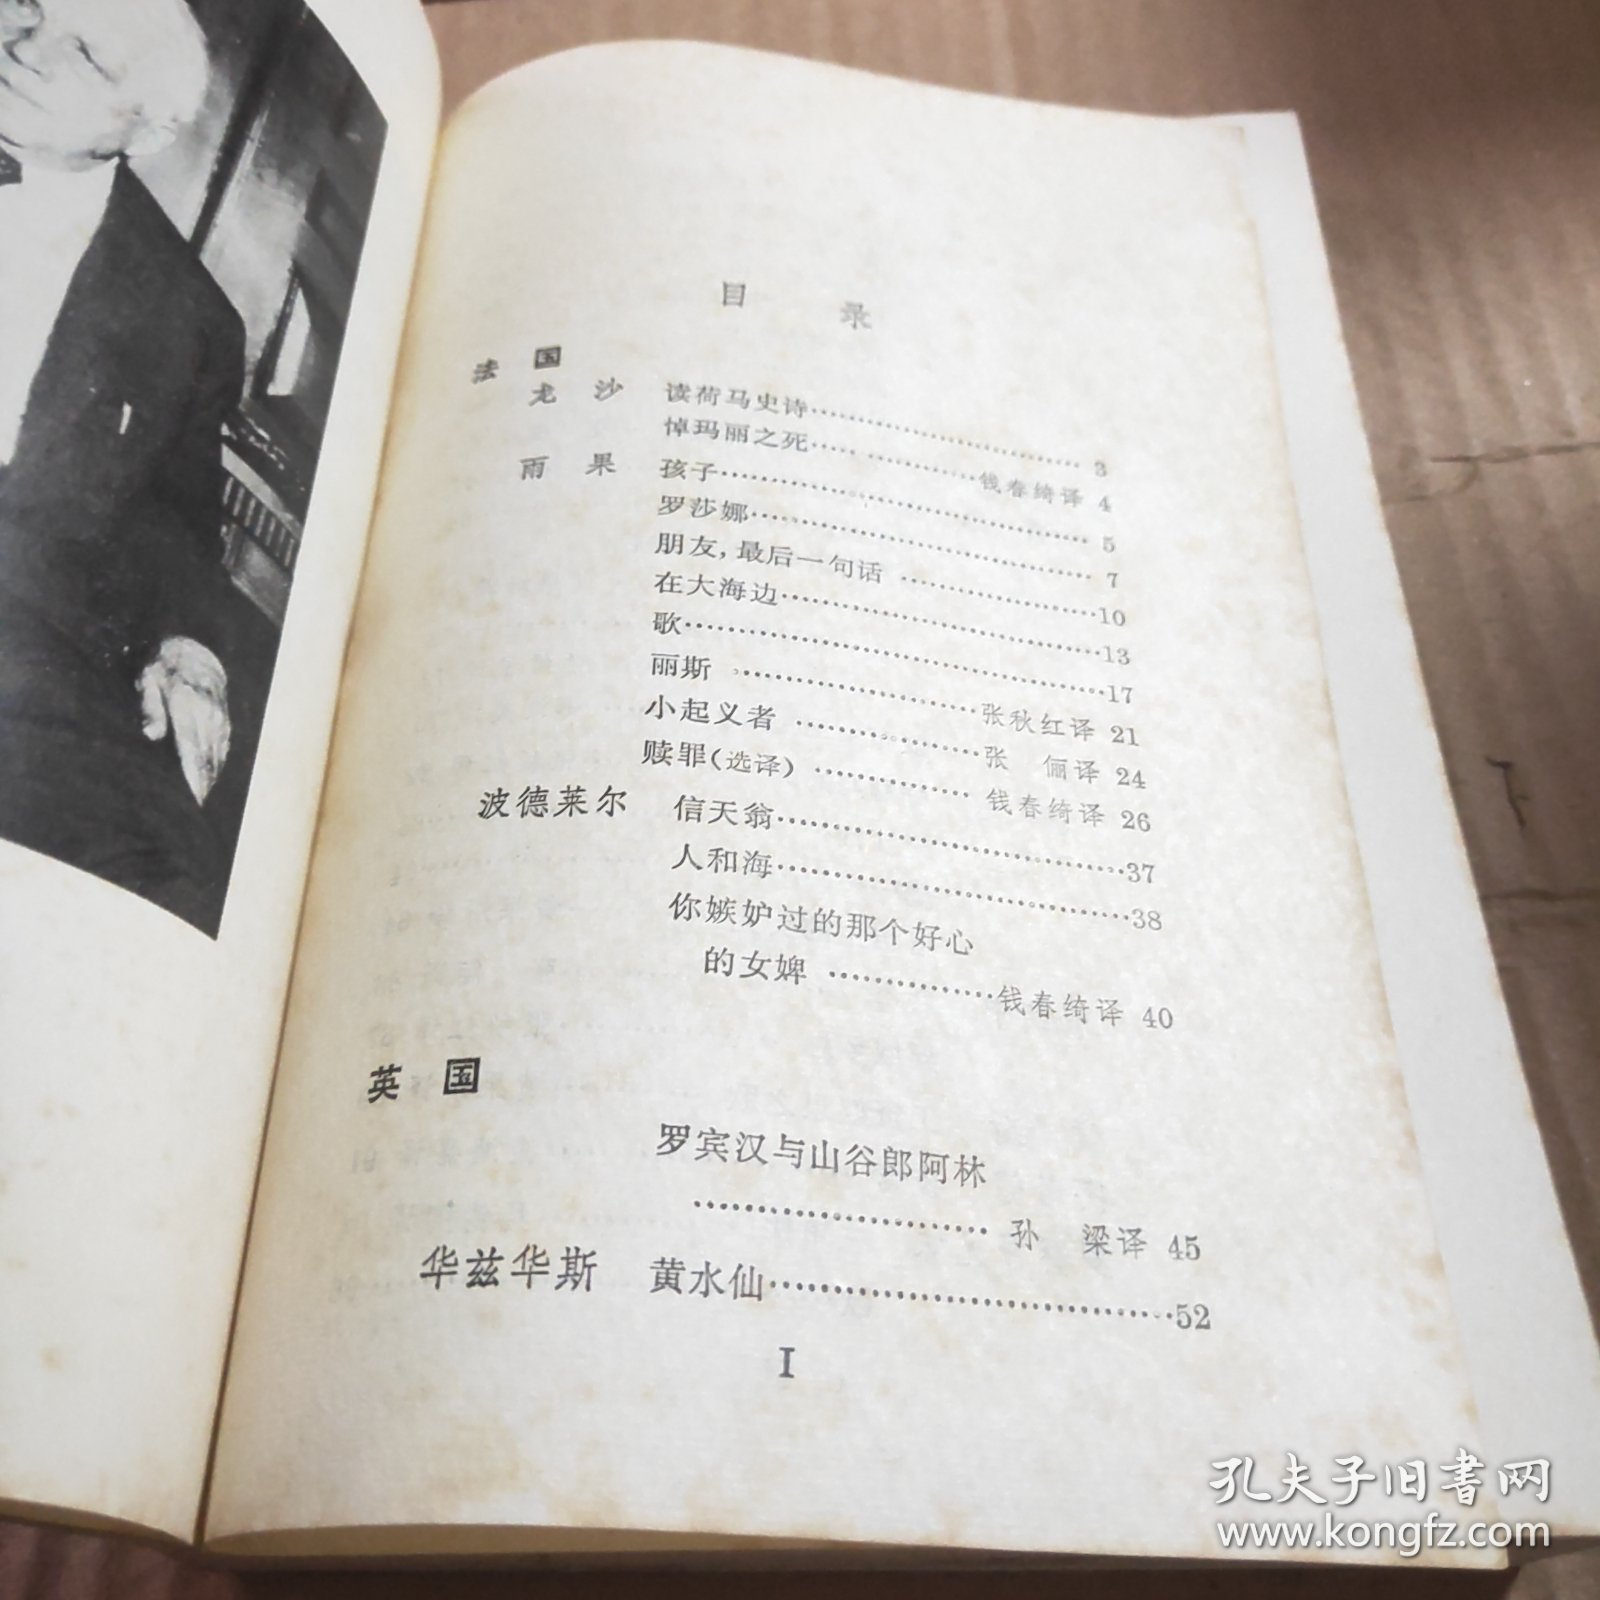 目 录
法 国
龙 沙 读荷马史诗……………………… 3
悼玛丽之死……………钱春绮译 4
雨 果 孩子……………………… 5
罗莎娜……………………… 7
朋友,最后一句话 ………………10
在大海边………………………13
歌………………………………17
丽斯 ………………张秋红译 21
小起义者 ……………张 俪译 24
赎罪(选译) ……………钱春绮译 26
波德莱尔 信天翁………………………37
人和海………………………38
你嫉妒过的那个好心
的女婢 ……………钱春绮译 40
英 国
罗宾汉与山谷郎阿林
……………………… 孙 梁译 45
华兹华斯 黄水仙………………………52
I
孔夫子旧书网
www.kongfz.com